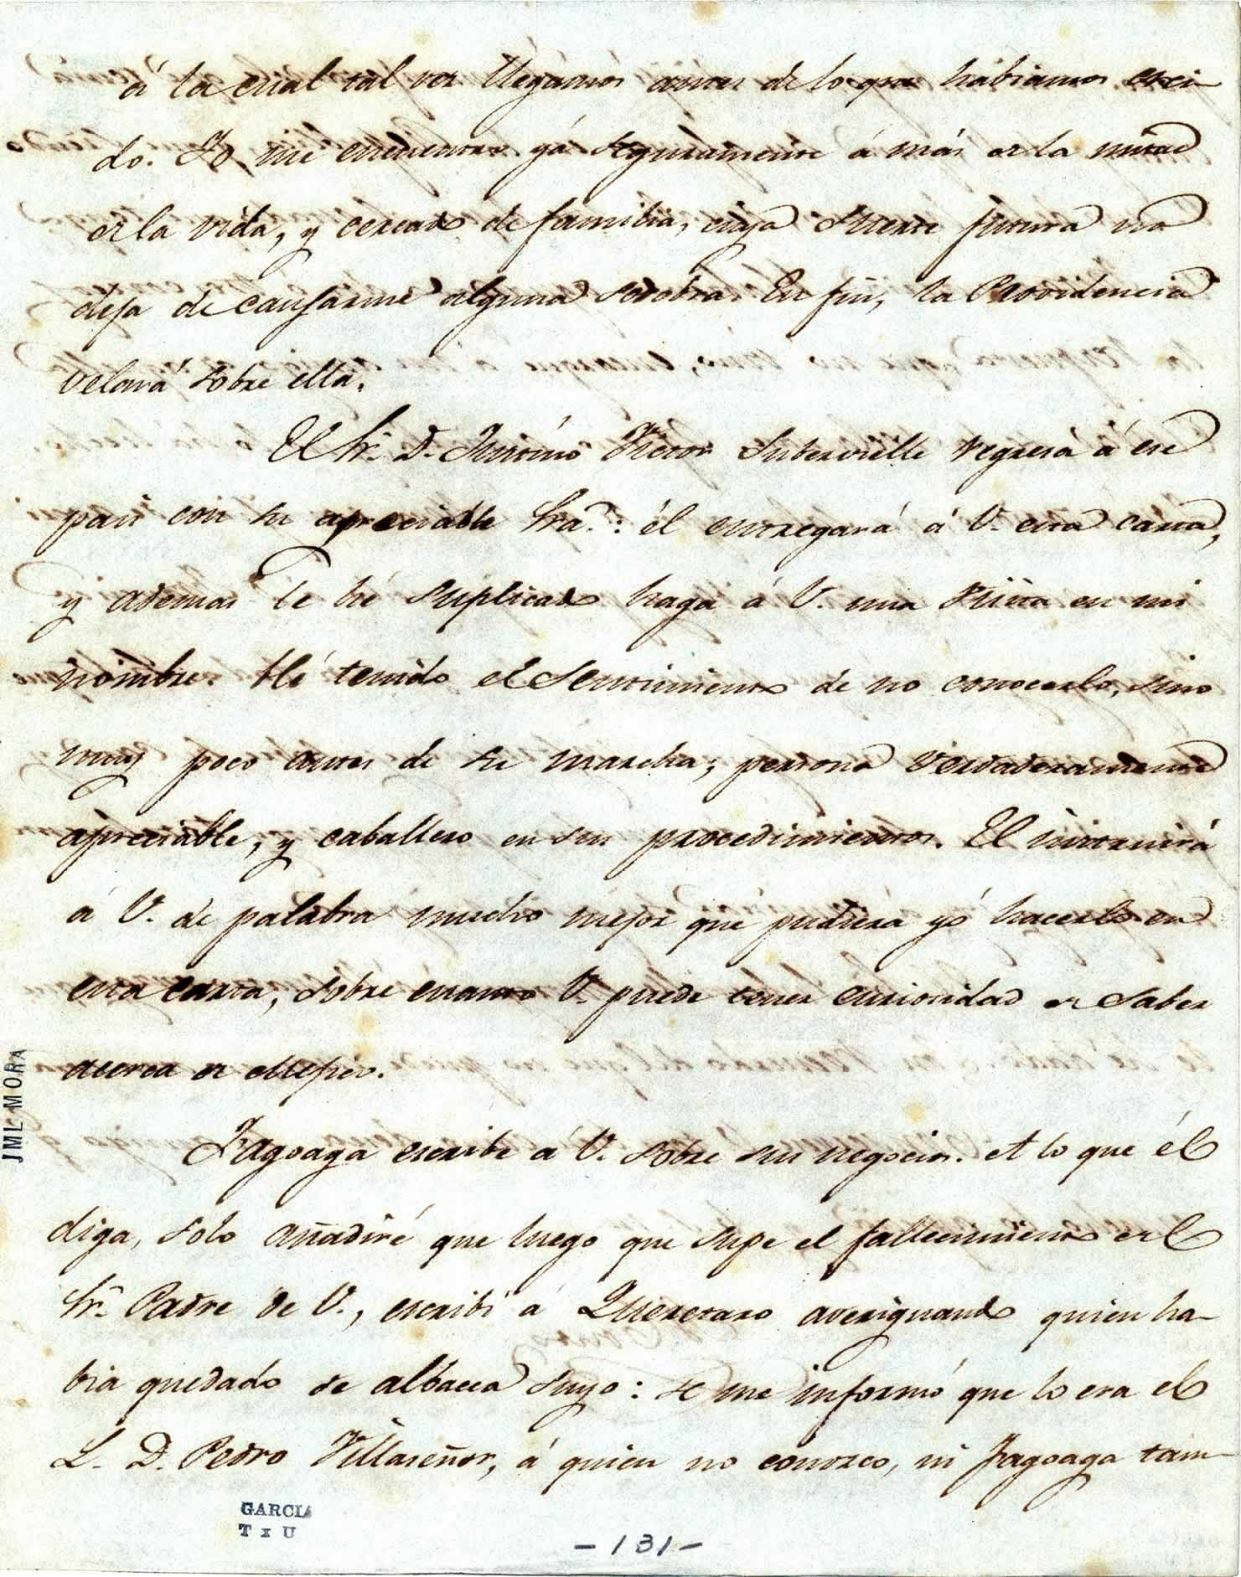 á la cual tal vez llegamos antes de lo que habiamos crei-
do. Yo me encuentro yá seguramente á más de la mitad
de la vida, y cercado de familia, cuya suerte futura no
deja de causarme alguna zozobra. En fin, la Providencia
velará sobre ella.
El Sr. D. Antonio Victor Subervielle regresa á ese
pais con su apreciable Sra.: él entregará á V. esta carta,
y ademas le hé suplicado haga á V. una visita en mi
nombre. Hé tenido el sentimiento de no conocerlo, sino
muy poco antes de su marcha; persona verdaderamente
apreciable, y caballero en sus procedimientos. El instruirá
á V. de palabra mucho mejor que pudiera yó hacerlo en
esta carta, sobre cuanto V. puede tener curiosidad de saber
acerca de Mejico.
Fagoaga escribe á V. sobre sus negocios. A lo que él
diga, solo añadiré que luego que supe el fallecimiento del
Sr. Padre de V., escribí á Queretaro averiguando quien ha-
bia quedado de albacea suyo: se me informó que lo era el
L. D. Pedro Villaseñor, á quien no conozco, ni Fagoaga tam-
JML MORA
GARCIA
- 131 -